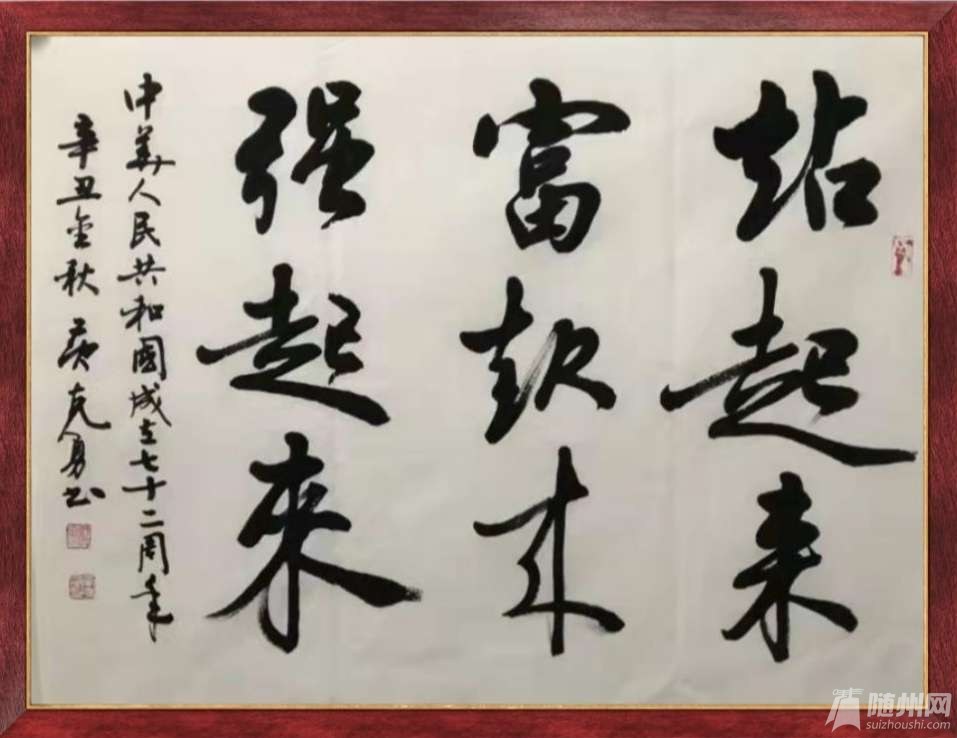 站起来
富起来
强起來
中华人民共和国成立七十二周年
辛丑金秋 克勇书
随州网
suizhoushi.com